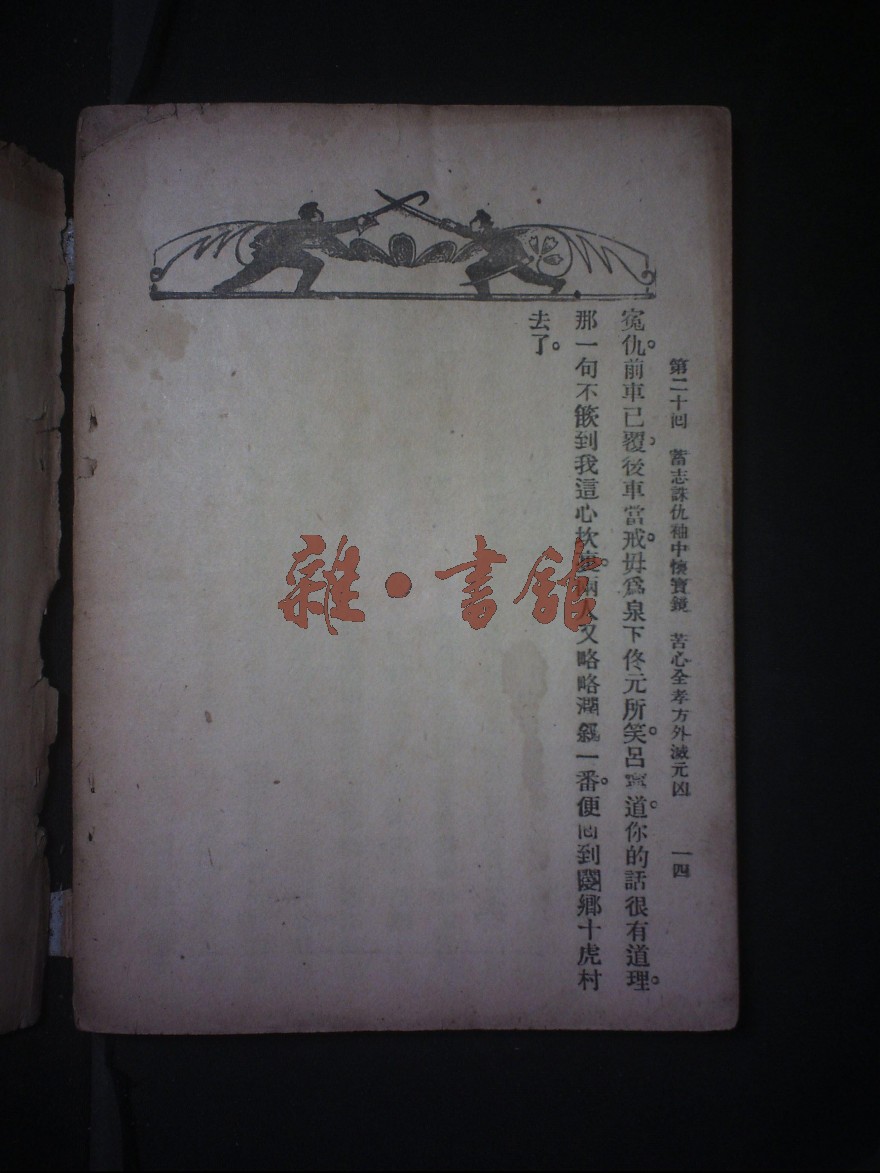 第二十回　蓄志誅仇袖中懷寶鏡　苦心全孝方外滅元凶　一四
寃仇。前車已覆。後車當戒。毋爲泉下佟元所笑。呂寧道。你的話很有道理。
那一句不餤到我這心坎裏。兩人又略略潤色一番。便回到閿鄉十虎村
去了。
雜·書館